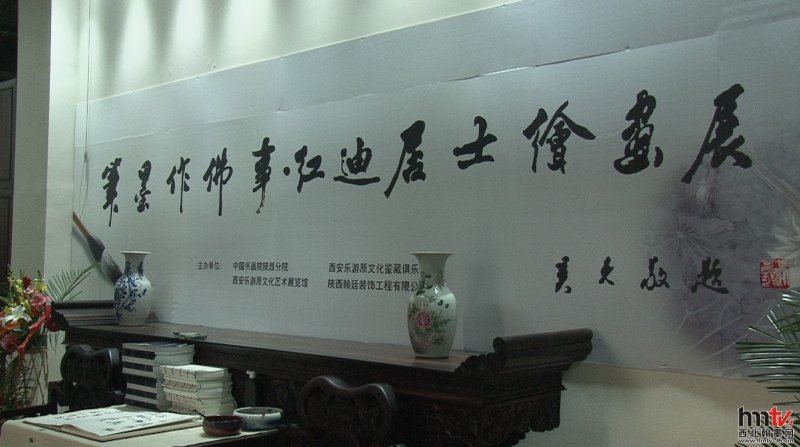 筆墨作佛事·红迪居士繪畫展
主办单位: 中国书画院陕西分院 西安乐游原文化鉴藏俱乐
西安乐游原文化艺术展览馆 陕西翰廷装饰工程有限公
敬题
hmtv
西北翰墨网